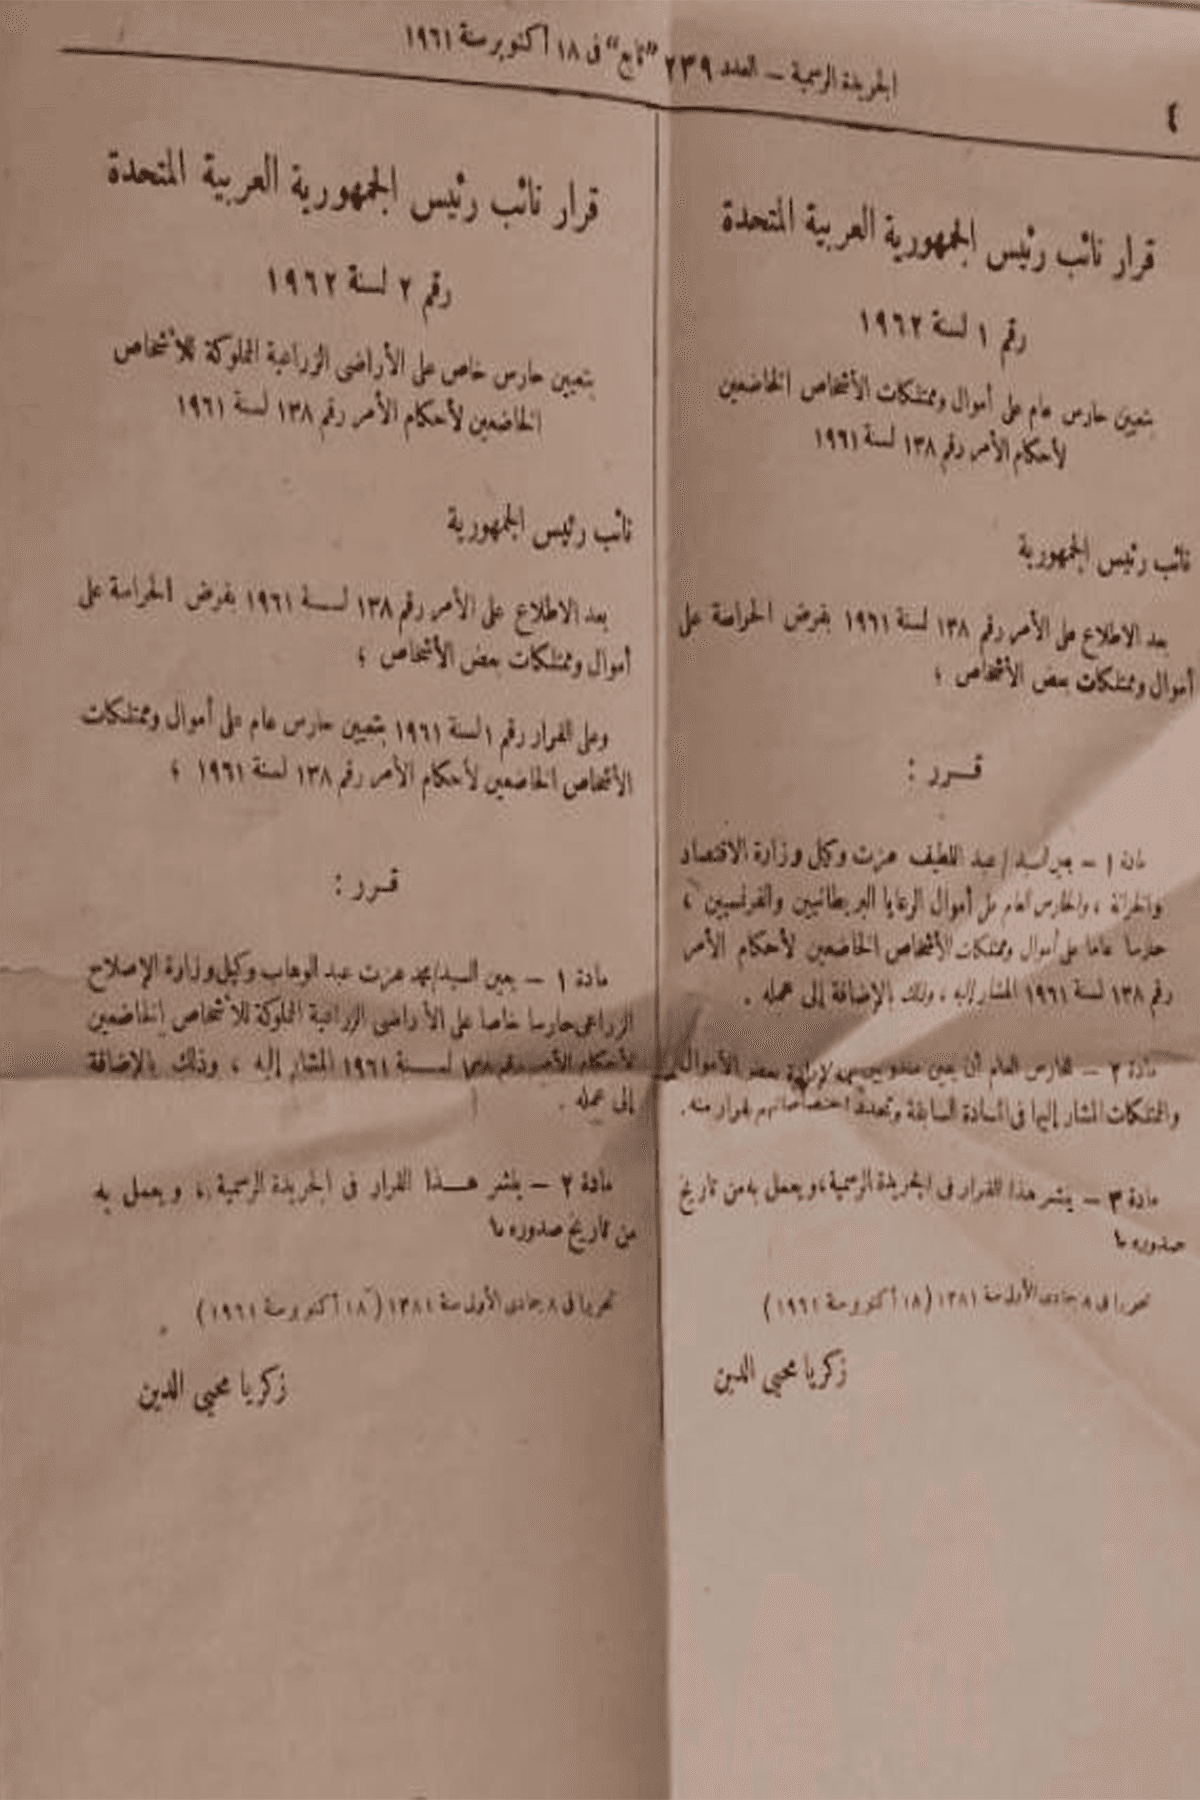 ٤
الجريدة الرسمية – العدد ٢٣٩ "تابع" فى ١٨ أكتوبر سنة ١٩٦١
قرار نائب رئيس الجمهورية العربية المتحدة
رقم ١ لسنة ١٩٦٢
بتعيين حارس عام على أموال وممتلكات الأشخاص الخاضعين
لأحكام الأمر رقم ١٣٨ لسنة ١٩٦١
نائب رئيس الجمهورية
بعد الاطلاع على الأمر رقم ١٣٨ لسنة ١٩٦١ بفرض الحراسة على
أموال وممتلكات بعض الأشخاص ؛
قـــرر :
مادة ١ – يعين السيد/ عبد اللطيف عزت وكيل وزارة الاقتصاد
والخزانة ، والحارس العام على أموال الرعايا البريطانيين والفرنسيين ،
حارسا عاما على أموال وممتلكات الأشخاص الخاضعين لأحكام الأمر
رقم ١٣٨ لسنة ١٩٦١ المشار إليه ، وذلك بالإضافة إلى عمله .
مادة ٢ – للحارس العام أن يعين مندوبين لإدارة بعض الأموال
والممتلكات المشار إليها فى المادة السابقة وتحدد اختصاصاتهم بقرار منه .
مادة ٣ – ينشر هذا القرار فى الجريدة الرسمية ، ويعمل به من تاريخ
صدوره ؟
تحريرا فى ٨ جمادى الأولى سنة ١٣٨١ (١٨ أكتوبر سنة ١٩٦١)
زكريا محيى الدين
قرار نائب رئيس الجمهورية العربية المتحدة
رقم ٢ لسنة ١٩٦٢
بتعيين حارس خاص على الأراضى الزراعية المملوكة للأشخاص
الخاضعين لأحكام الأمر رقم ١٣٨ لسنة ١٩٦١
نائب رئيس الجمهورية
بعد الاطلاع على الأمر رقم ١٣٨ لســـنة ١٩٦١ بفرض الحراسة على
أموال وممتلكات بعض الأشخاص ؛
وعلى القرار رقم ١ لسنة ١٩٦١ بتعيين حارس عام على أموال وممتلكات
الأشخاص الخاضعين لأحكام الأمر رقم ١٣٨ لسنة ١٩٦١ ؛
قـــرر :
مادة ١ – يعين السيد/ محمد عزت عبد الوهاب وكيل وزارة الإصلاح
الزراعى حارسا خاصا على الأراضى الزراعية المملوكة للأشخاص الخاضعين
لأحكام الأمر رقم ١٣٨ لســـنة ١٩٦١ المشار إليه ، وذلك بالإضافة
إلى عمله .
مادة ٢ – ينشر هـــذا القرار فى الجريدة الرسمية ، ويعمل به
من تاريخ صدوره ؟
تحريرا فى ٨ جمادى الأولى سنة ١٣٨١ (١٨ أكتوبر سنة ١٩٦١)
زكريا محيى الدين